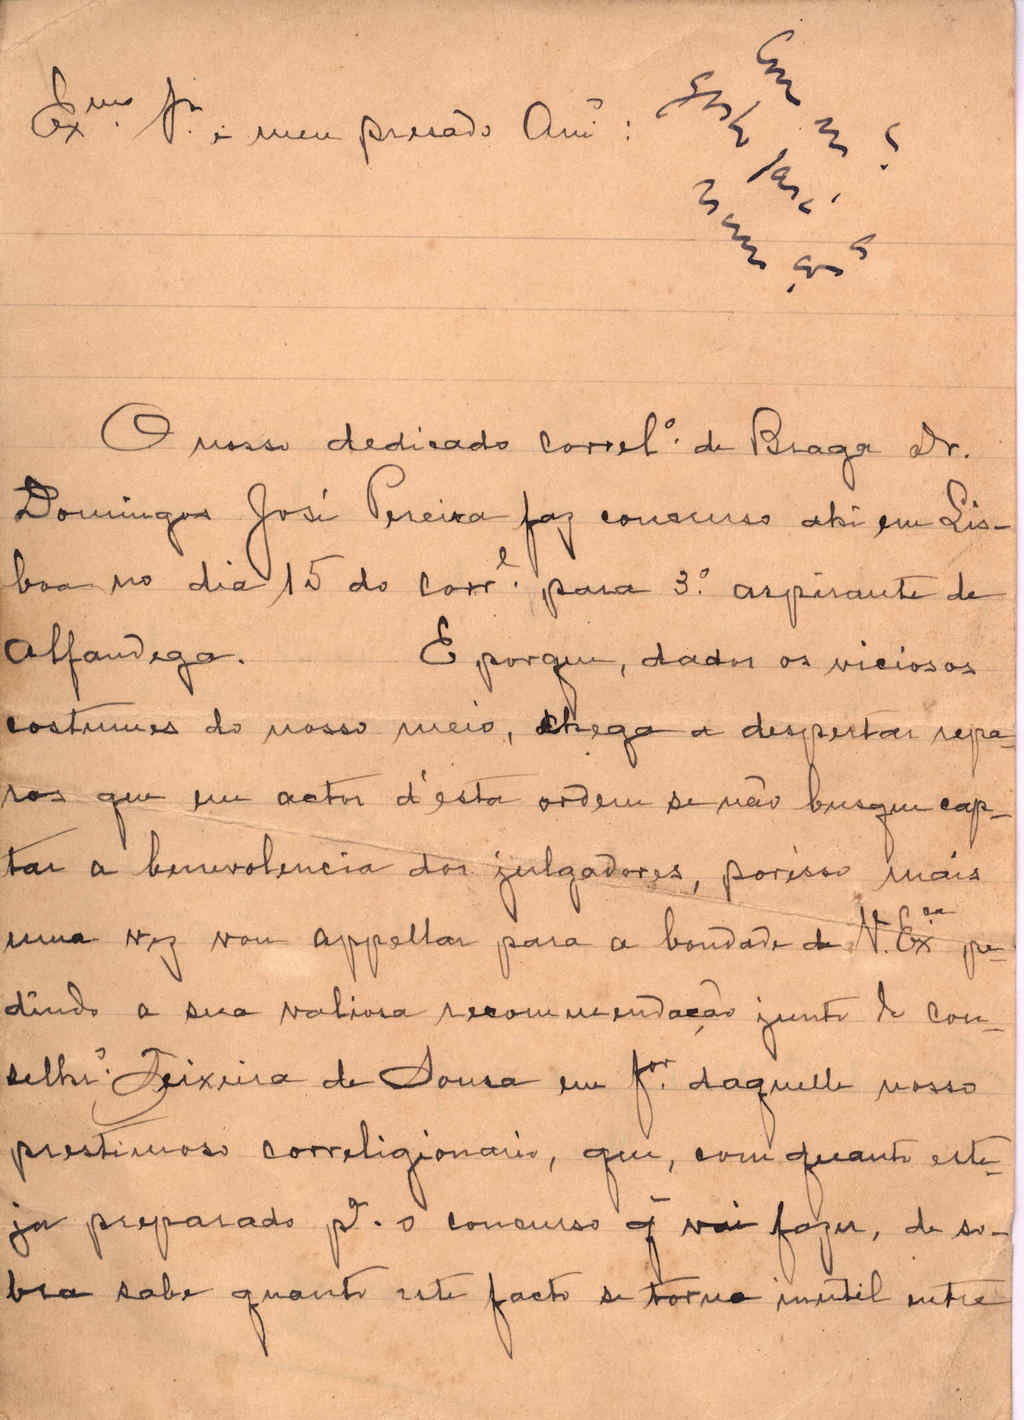 Exmo. Sr. e meu presado Amo:
O nosso dedicado correlo. de Braga Dr.
Domingos José Pereira faz concurso ahi em Lis-
boa no dia 15 do corre. para 3.o aspirante de
Alfandega. E porque, dados os viciosos
costumes do nosso meio, chega a despertar repa-
ros que em actos d'esta ordem se não busque cap-
tar a benevolencia dos julgadores, porisso mais
uma vez vou appellar para a bondade de V. Exa. pe-
dindo a sua valiosa recommendação junto do con-
selho. Teixeira de Sousa em for. daquelle nosso
prestimoso correligionario, que, com quanto este-
ja preparado pa. o concurso q̃ vai fazer, de so-
bra sabe quanto este facto se torna inutil entre